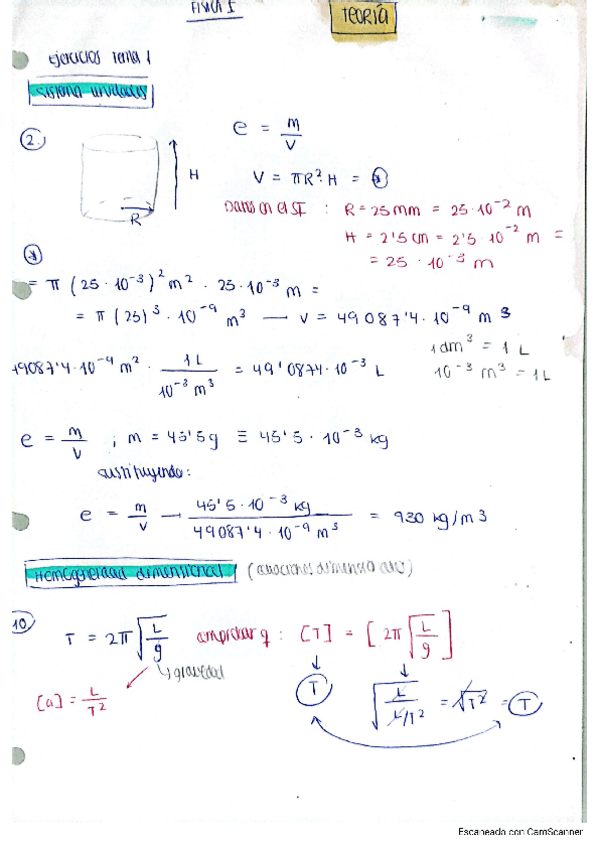 FISICA I
TEORÍA
ejercicios Tema 1
sistema unidades
2.
e = m/V
H
R
V = πR²·H = *
Datos en el SI : R = 25 mm = 25·10⁻² m
H = 2'5 cm = 2'5·10⁻² m =
= 25·10⁻³ m
*
= π (25·10⁻³)² m² · 25·10⁻³ m =
= π (25)³ · 10⁻⁹ m³ — V = 49087'4·10⁻⁹ m³
1 dm³ = 1 L
49087'4·10⁻⁹ m² · 1L/10⁻³ m³ = 49'0874·10⁻³ L
10⁻³ m³ = 1L
e = m/V ; m = 45'5g ≡ 45'5·10⁻³ kg
sustituyendo:
e = m/V → 45'5·10⁻³ kg / 49087'4·10⁻⁹ m³ = 930 kg/m3
Homogeneidad dimensional (ecuaciones dimensionales)
10
T = 2π√(L/g) comprobar q : [T] = [2π√(L/g)]
gravedad
[a] = L/T²
T
√(L/(L/T²)) = √T² = T
Escaneado con CamScanner